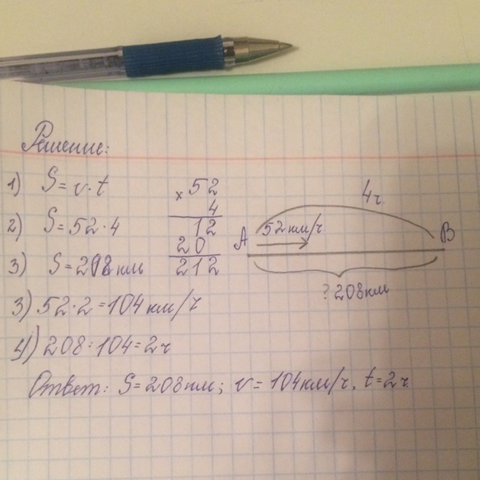 Решение:
1) S = v · t
2) S = 52 · 4
3) S = 208 км
× 52
4
12
20
212
4 ч
52 км/ч
А
В
? 208 км
3) 52 · 2 = 104 км/ч
4) 208 : 104 = 2 ч
Ответ: S = 208 км; v = 104 км/ч, t = 2 ч